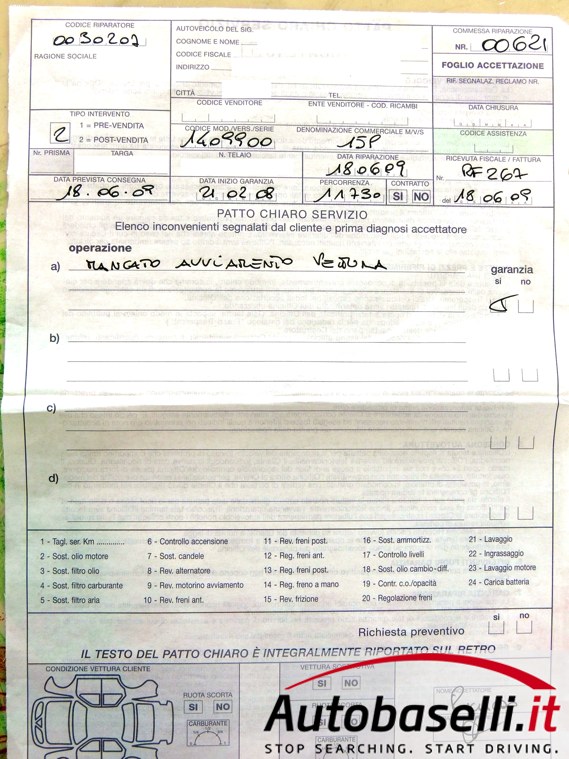 CODICE RIPARATORE
0030202
RAGIONE SOCIALE
AUTOVEICOLO DEL SIG.
COGNOME E NOME
CODICE FISCALE
INDIRIZZO
CITTÀ TEL.
COMMESSA RIPARAZIONE
NR. 00621
FOGLIO ACCETTAZIONE
RIF. SEGNALAZ. RECLAMO NR.
TIPO INTERVENTO
2
1 = PRE-VENDITA
2 = POST-VENDITA
CODICE VENDITORE
ENTE VENDITORE - COD. RICAMBI
DATA CHIUSURA
CODICE MOD./VERS./SERIE
1409900
DENOMINAZIONE COMMERCIALE M/V/S
15P
CODICE ASSISTENZA
Nr. PRISMA
TARGA
N. TELAIO
DATA RIPARAZIONE
180609
RICEVUTA FISCALE / FATTURA
Nr. RF267
DATA PREVISTA CONSEGNA
18.06.09
DATA INIZIO GARANZIA
21.02.08
PERCORRENZA
11730
CONTRATTO
SI NO
del 18.06.09
PATTO CHIARO SERVIZIO
Elenco inconvenienti segnalati dal cliente e prima diagnosi accettatore
operazione
a) MANCATO AVVIAMENTO VETTURA
garanzia
si no
b)
c)
d)
1 - Tagl. ser. Km ............
2 - Sost. olio motore
3 - Sost. filtro olio
4 - Sost. filtro carburante
5 - Sost. filtro aria
6 - Controllo accensione
7 - Sost. candele
8 - Rev. alternatore
9 - Rev. motorino avviamento
10 - Rev. freni ant.
11 - Rev. freni post.
12 - Reg. freni ant.
13 - Reg. freni post.
14 - Reg. freno a mano
15 - Rev. frizione
16 - Sost. ammortizz.
17 - Controllo livelli
18 - Sost. olio cambio-diff.
19 - Contr. c.o./opacità
20 - Regolazione freni
21 - Lavaggio
22 - Ingrassaggio
23 - Lavaggio motore
24 - Carica batteria
Richiesta preventivo
si no
IL TESTO DEL PATTO CHIARO È INTEGRALMENTE RIPORTATO SUL RETRO
CONDIZIONE VETTURA CLIENTE
RUOTA SCORTA
SI NO
CARBURANTE
SI NO
Autobaselli.it
STOP SEARCHING. START DRIVING.